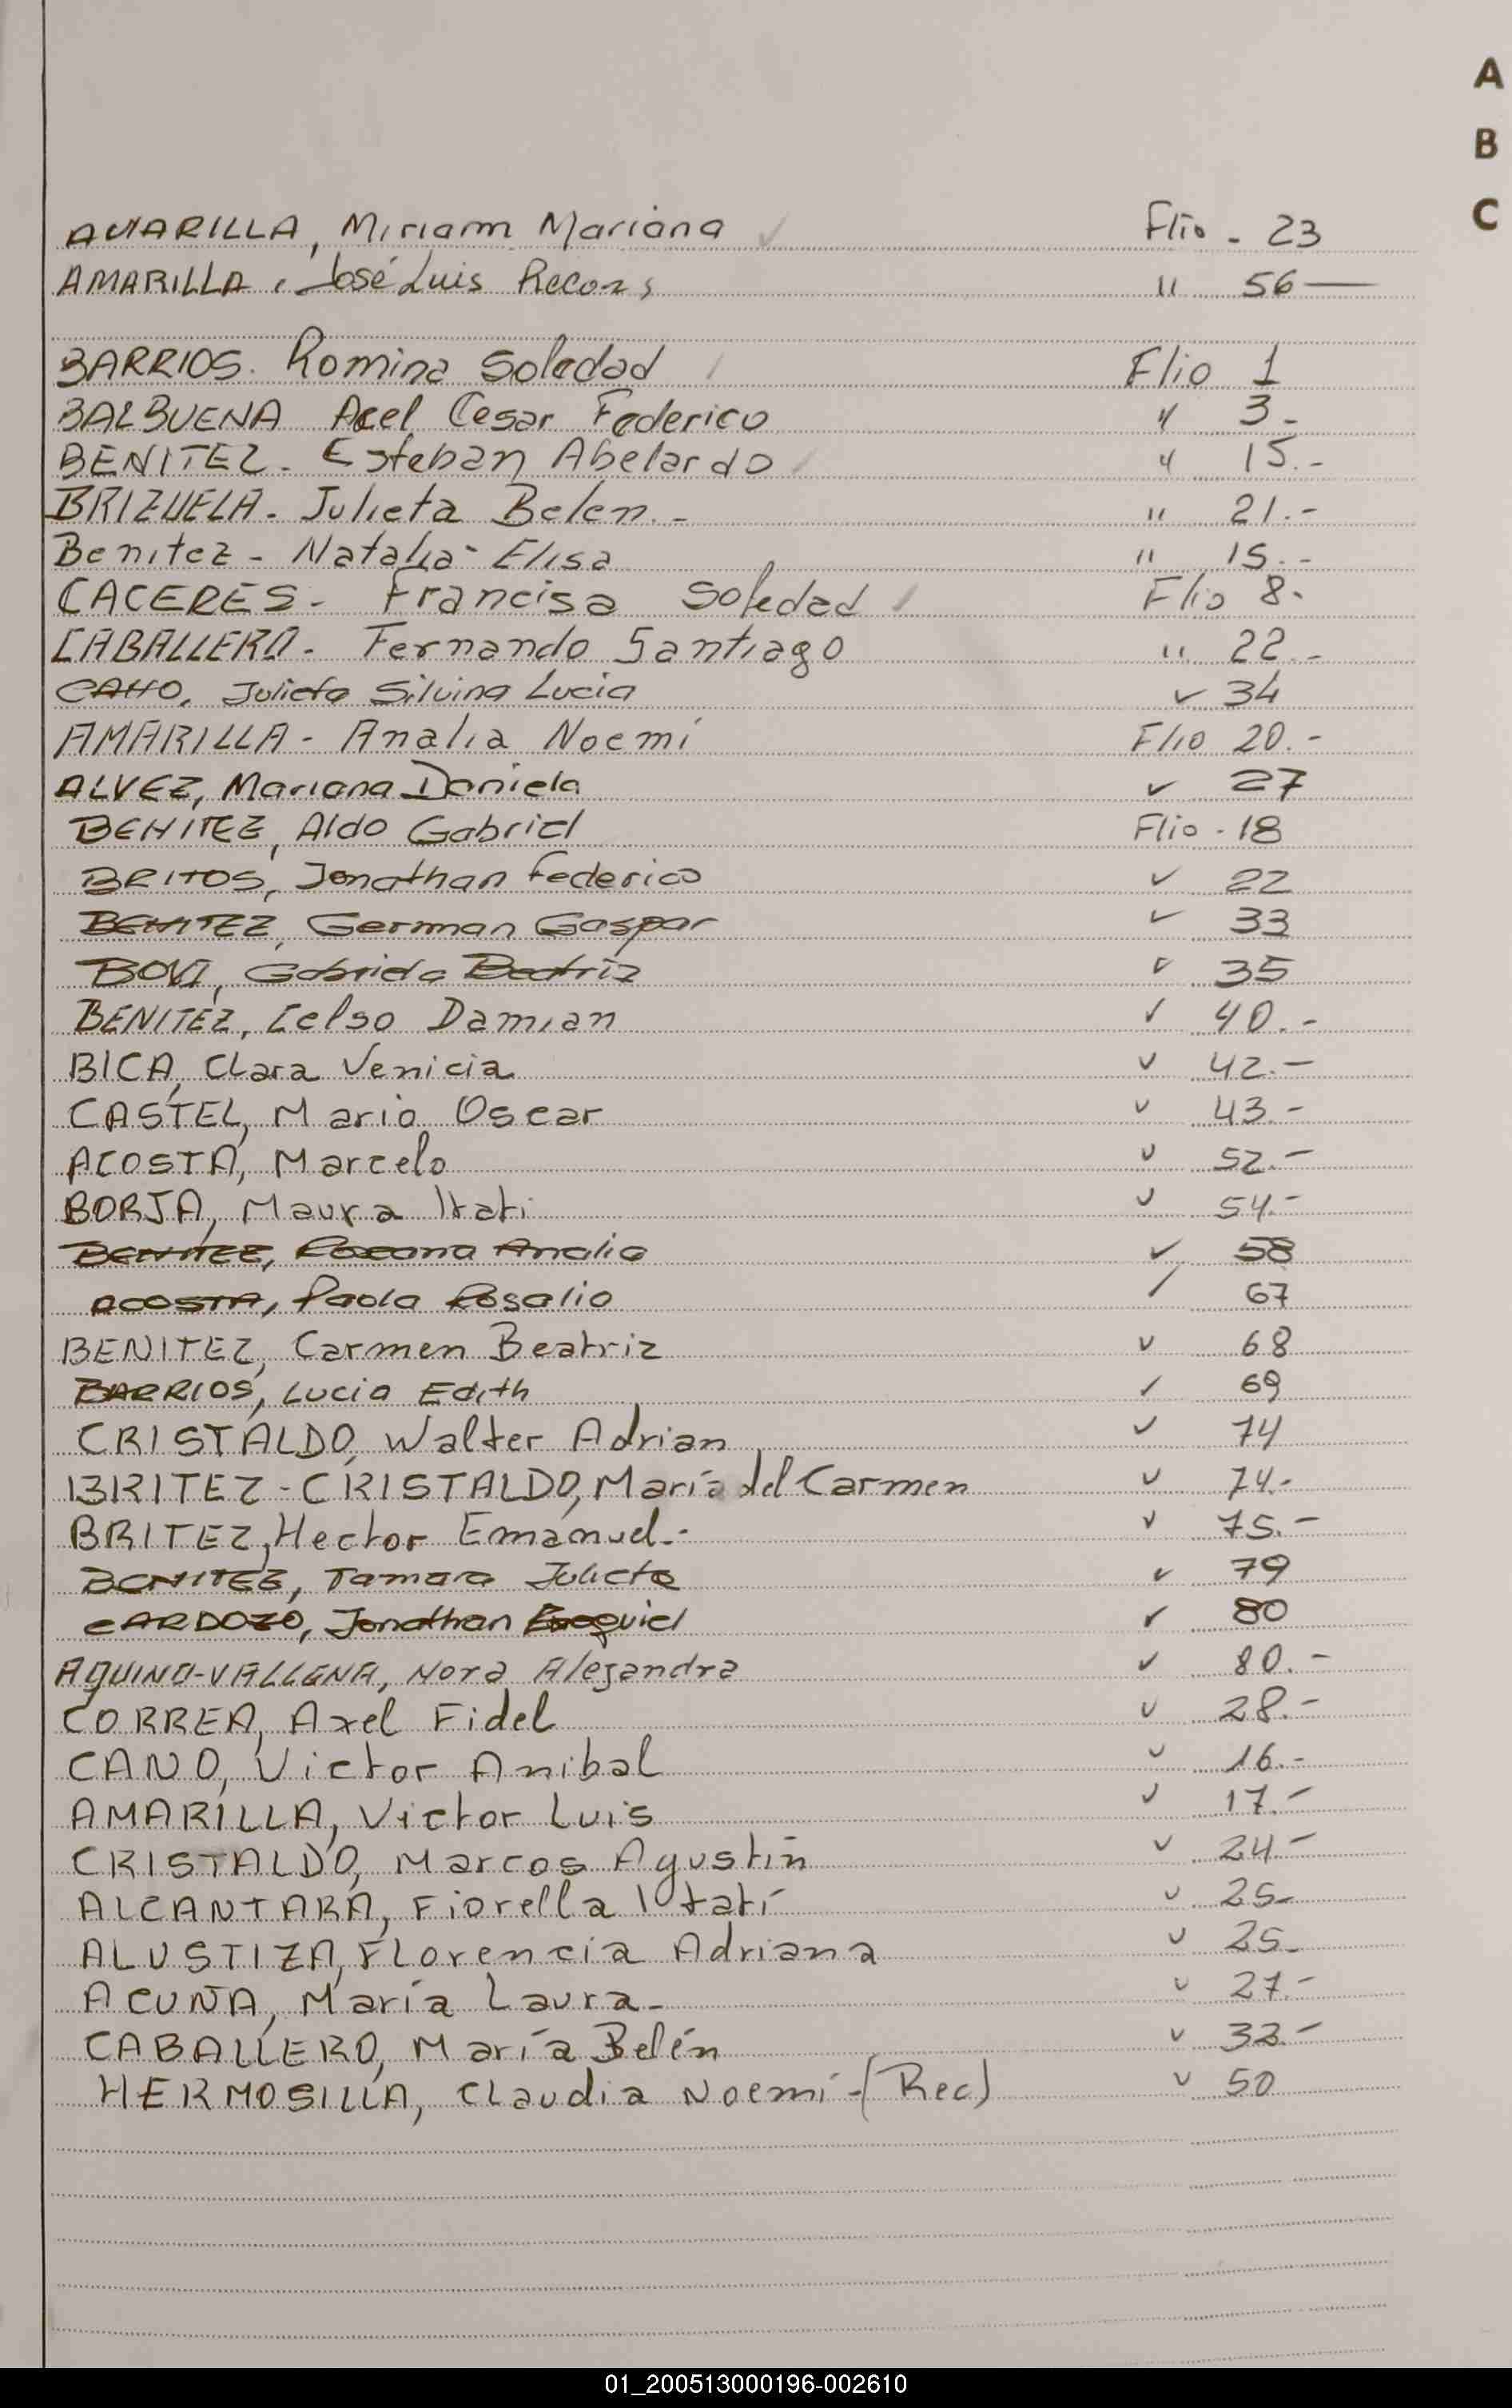 A
B
C
AMARILLA, Miriam Mariana ✓ Flio - 23
AMARILLA, José Luis Recons " 56 —
BARRIOS. Romina Soledad / Flio 1
BALBUENA Acel Cesar Federico " 3.-
BENITEZ - Esteban Abelardo / " 15.-
BRIZUELA - Julieta Belen.- " 21.-
Benitez - Natalia - Elisa " 15.-
CACERES - Francisa Soledad / Flio 8.
CABALLERO - Fernando Santiago " 22.-
CANO, Julieta Silvina Lucia ✓ 34
AMARILLA - Analia Noemí Flio 20.-
ALVEZ, Mariana Daniela ✓ 27
BENITEZ, Aldo Gabriel Flio - 18
BRITOS, Jonathan Federico ✓ 22
BENITEZ, German Gaspar ✓ 33
BOVI, Gabriela Beatriz ✓ 35
BENITEZ, Celso Damian ✓ 40.-
BICA, Clara Venicia ✓ 42.-
CASTEL, Mario Oscar ✓ 43.-
ACOSTA, Marcelo ✓ 52.-
BORJA, Maura Itati ✓ 54.-
BENITEZ, Roxana Analia ✓ 58
ACOSTA, Paola Rosalia ✓ 67
BENITEZ, Carmen Beatriz ✓ 68
BARRIOS, Lucia Edith ✓ 69
CRISTALDO, Walter Adrian ✓ 74
BRITEZ - CRISTALDO, María del Carmen ✓ 74.-
BRITEZ, Hector Emanuel.- ✓ 75.-
BENITEZ, Tamara Julieta ✓ 79
CARDOZO, Jonathan Exequiel ✓ 80
AQUINO-VALLENA, Nora Alejandra ✓ 80.-
CORREA, Axel Fidel ✓ 28.-
CANO, Victor Anibal ✓ 16.-
AMARILLA, Victor Luis ✓ 17.-
CRISTALDO, Marcos Agustín ✓ 24.-
ALCANTARA, Fiorella Itatí ✓ 25.-
ALUSTIZA, Florencia Adriana ✓ 25.-
ACUÑA, María Laura - ✓ 27.-
CABALLERO, María Belén ✓ 32.-
HERMOSILLA, Claudia Noemí - (Rec) ✓ 50
01_200513000196-002610